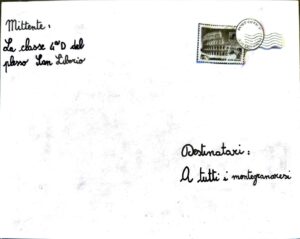 Mittente:
La classe 4ªD del
plesso San Liborio
Destinatari:
A tutti i montegranaresi